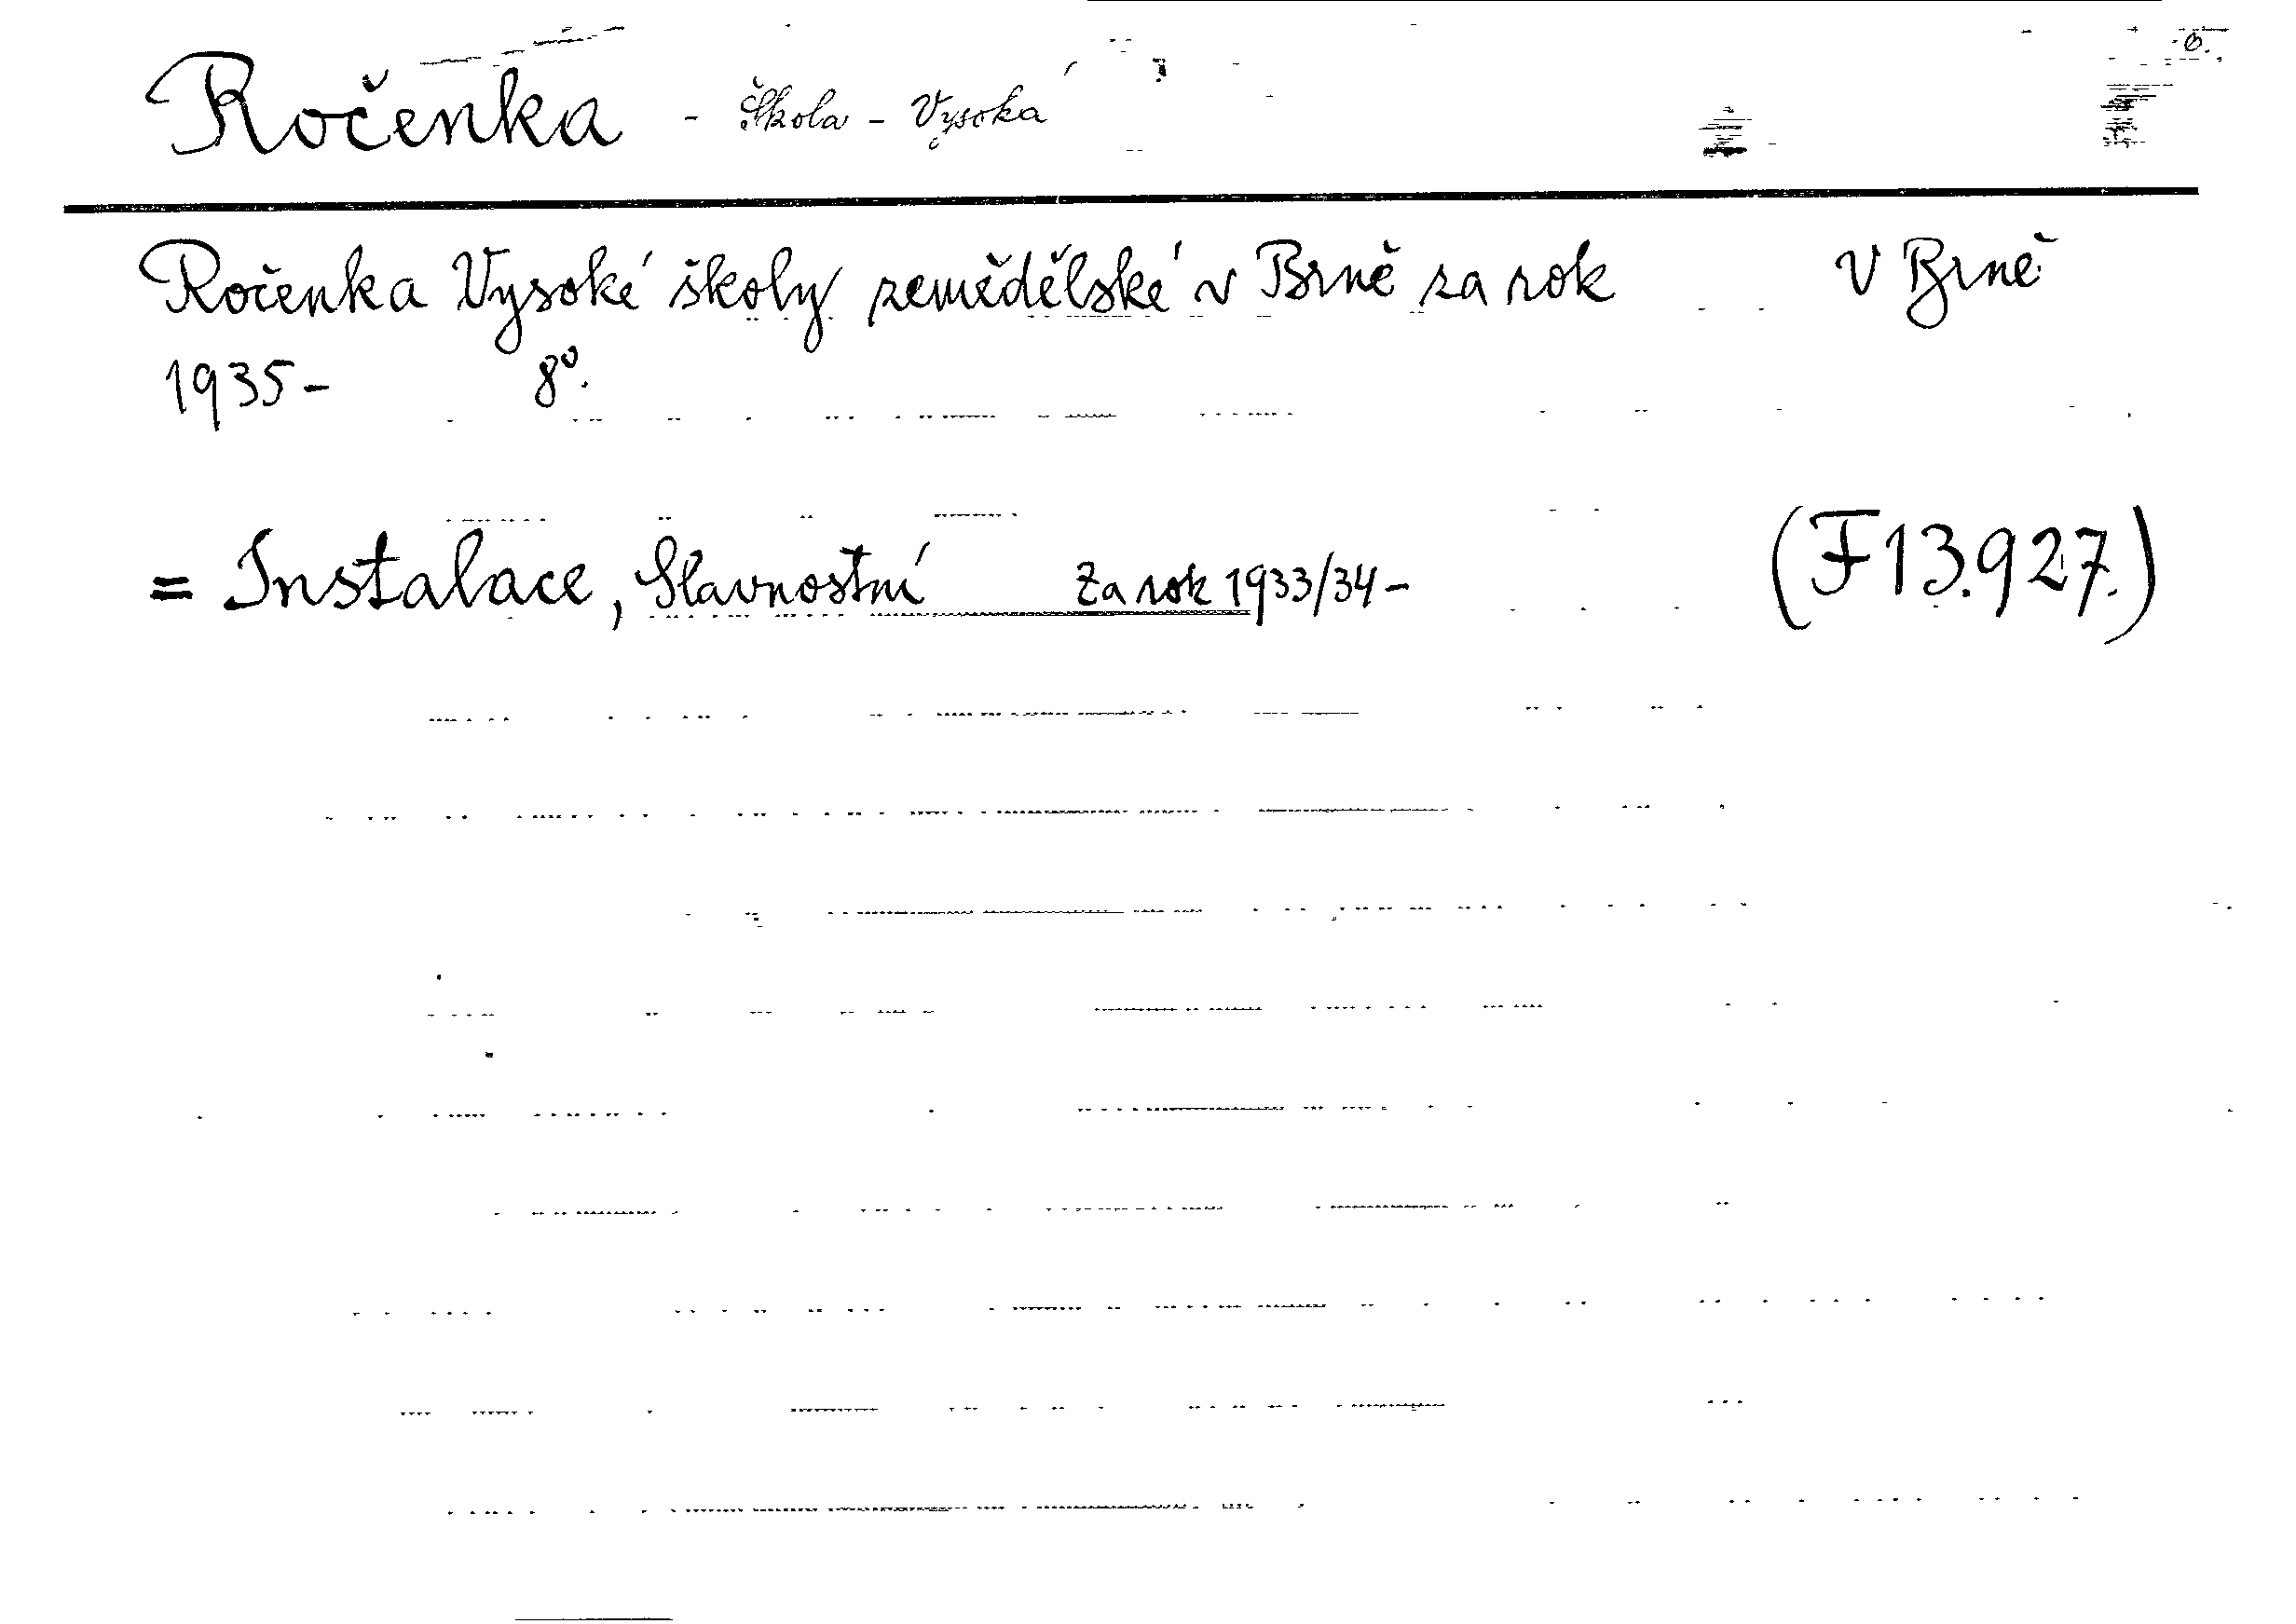 Ročenka - Škola - Vysoká
Ročenka Vysoké školy zemědělské v Brně za rok V Brně
1935- 8°.
= Instalace, Slavnostní za rok 1933/34- (F13.927.)